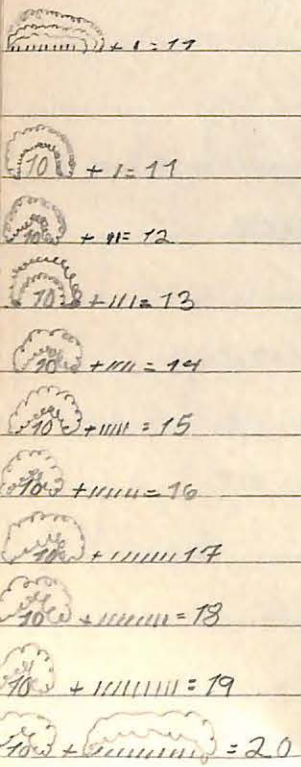 |||||||||| + | = 11
10 + | = 11
10 + || = 12
10 + ||| = 13
10 + |||| = 14
10 + ||||| = 15
10 + |||||| = 16
10 + ||||||| 17
10 + |||||||| = 18
10 + ||||||||| = 19
10 + |||||||||| = 20